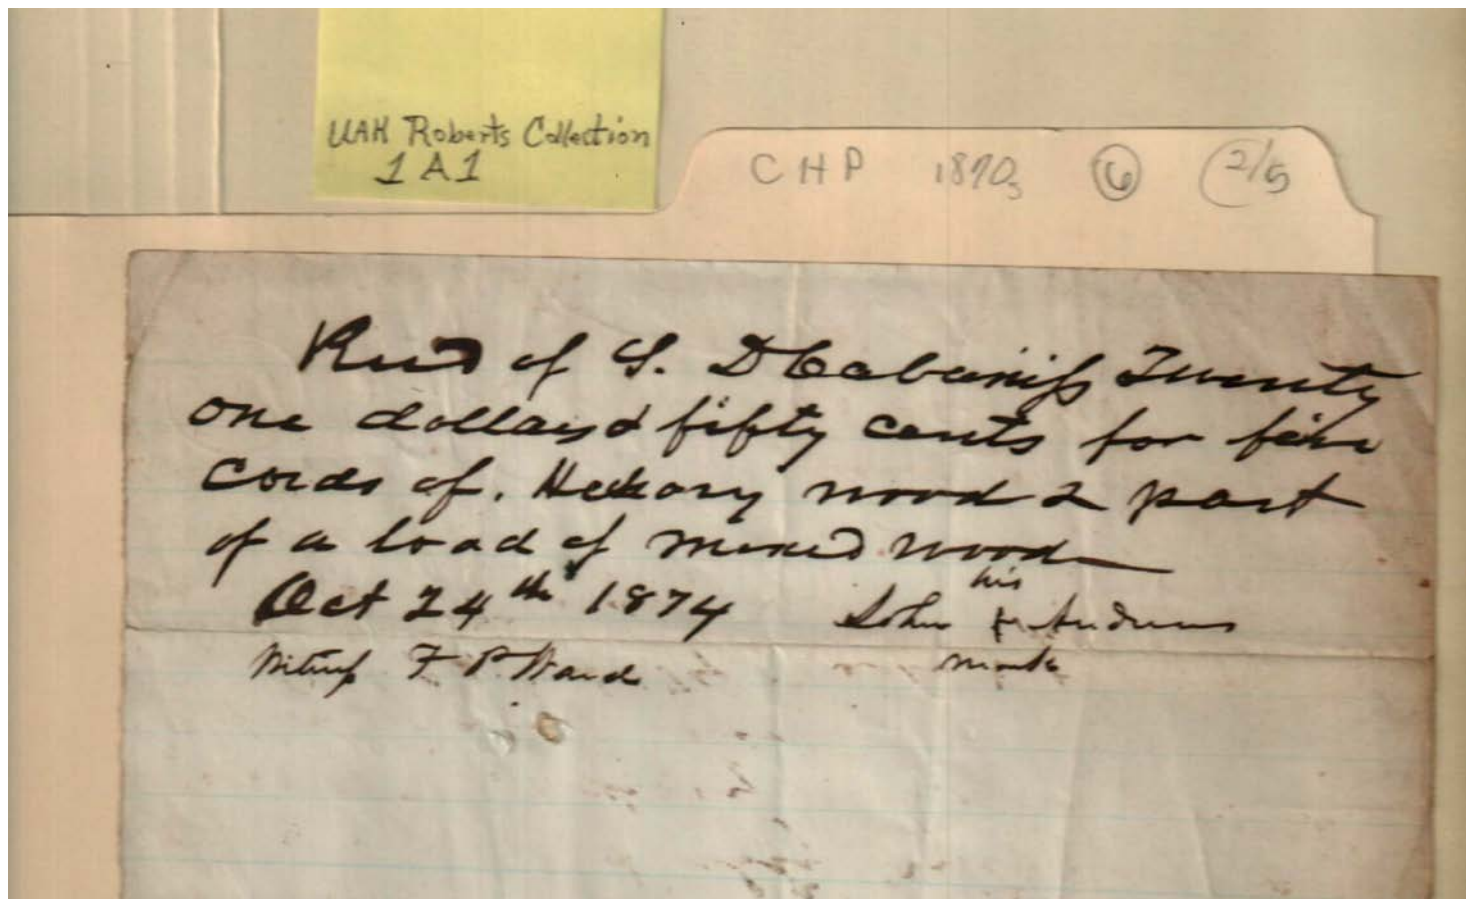 UAH Roberts Collection
1A1
CHP 1870s 6 2/5
Recd of S. D Cabaniss Twenty
one dollars & fifty cents for five
cords of. Hickory wood & part
of a load of mixed wood
Oct 24th 1874
his
John x Andrews
mark
Witness F P. Ward